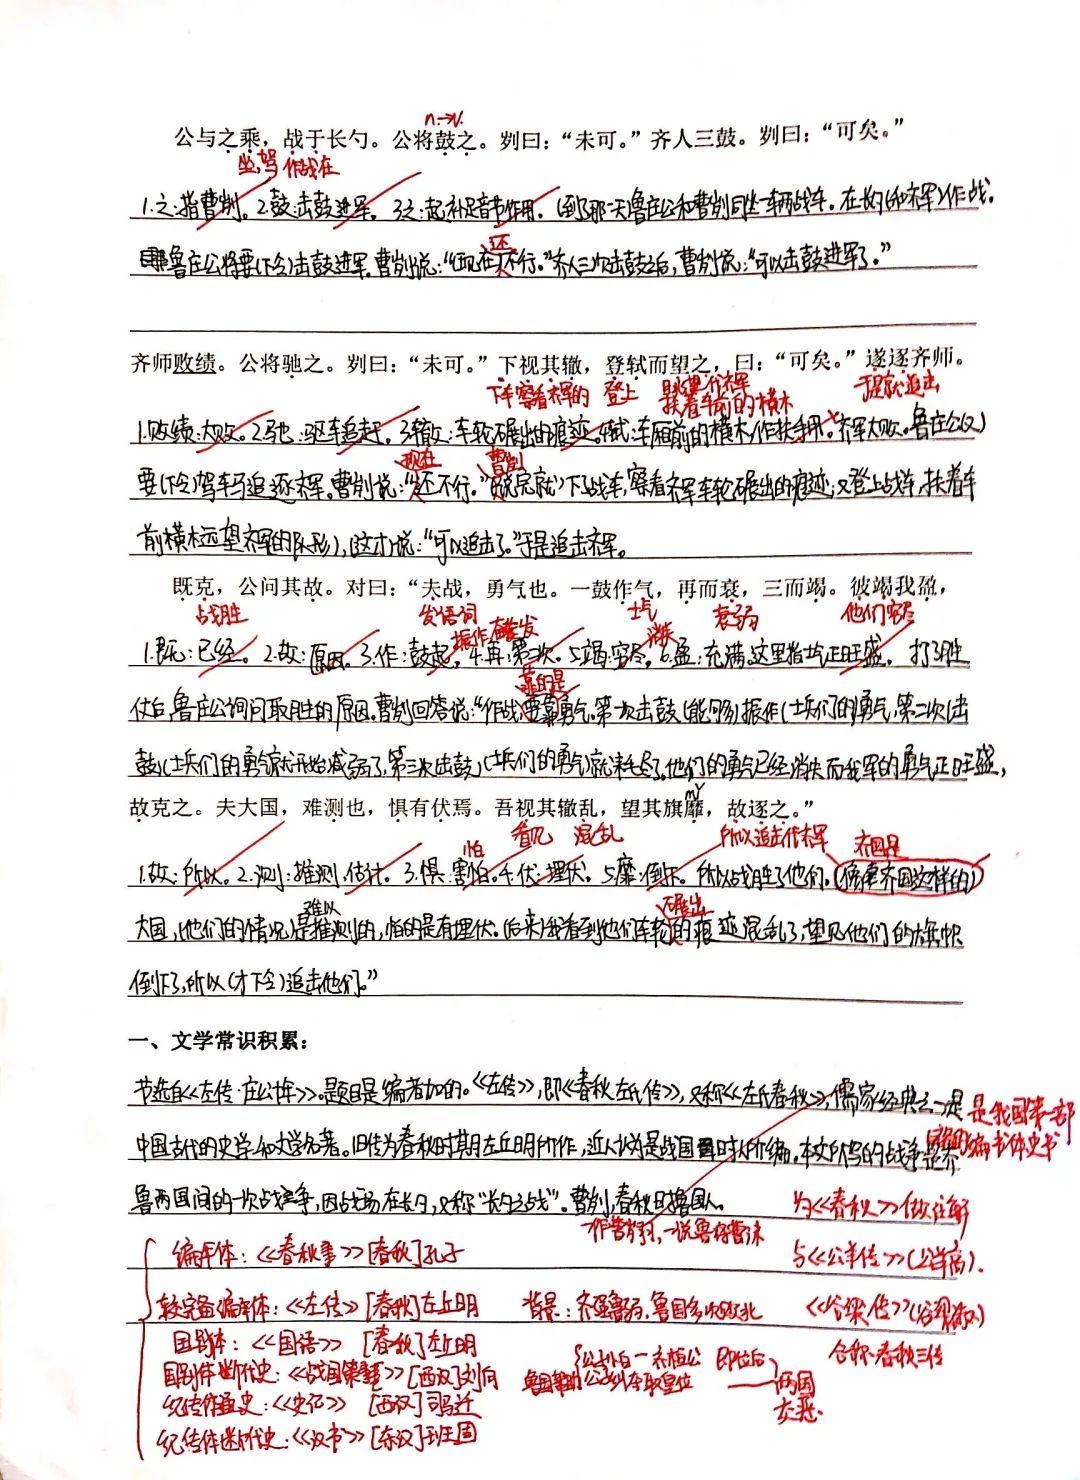 n.→v.
公与之乘，战于长勺。公将鼓之。刿曰：“未可。”齐人三鼓。刿曰：“可矣。”
坐,驾 作战在
1.之:指曹刿。2.鼓:击鼓进军。3.之:起补足音节作用。(到了那一天)鲁庄公和曹刿同坐一辆战车。在长勺(和齐军)作战。
鲁庄公将要(下令)击鼓进军。曹刿说:“(现在)不行。”齐人三次击鼓之后,曹刿说:“可以击鼓进军了。”
还
齐师败绩。公将驰之。刿曰：“未可。”下视其辙，登轼而望之，曰：“可矣。”遂逐齐师。
下车察看齐军的 登上 眺望齐军 于是就追击
扶着车前的横木
1.败绩:大败。2.驰:驱车追赶。3.辙:车轮碾出的痕迹。4.轼:车厢前的横木,作扶手用。齐军大败。鲁庄公(又)
现在 曹刿
要(下令)驾车马追逐齐军。曹刿说:“还不行。”(说完就)下了战车,察看齐军车轮碾出的痕迹;又登上战车,扶着车
前横木远望齐军的(队形),(这才)说:“可以追击了。”于是追击齐军。
既克，公问其故。对曰：“夫战，勇气也。一鼓作气，再而衰，三而竭。彼竭我盈，
战胜 发语词 士气 衰弱 他们穷尽
振作 消失
1.既:已经。2.故:原因。3.作:鼓起。4.再:第二次。5.竭:穷尽。6.盈:充满,这里指士气正旺盛。打了胜
靠的是
仗后,鲁庄公询问取胜的原因。曹刿回答说:“作战要靠勇气。第一次击鼓(能够)振作(士兵们的)勇气,第二次(击
鼓)(士兵们的)勇气就开始减弱了,第三次(击鼓)(士兵们的)勇气就耗尽了。他们的勇气已经消失而我军的勇气正旺盛,
mǐ
故克之。夫大国，难测也，惧有伏焉。吾视其辙乱，望其旗靡，故逐之。”
怕 看见 混乱 所以追击齐军 齐国是
1.故:所以。2.测:推测,估计。3.惧:害怕。4.伏:埋伏。5.靡:倒下。所以战胜了他们。(像齐国这样的)
难以 碾出
大国,(他们的情况)是推测的,怕的是有埋伏。(后来)我看到他们车轮的痕迹混乱了,望见他们的旗帜
倒下了,所以(才下令)追击他们。”
一、文学常识积累：
节选自《左传·庄公十年》。题目是编者加的。《左传》,即《春秋左氏传》,又称《左氏春秋》,儒家经典之一,是
是我国第一部
中国古代的史学和文学名著。旧传为春秋时期左丘明所作,近人认为是战国时人所编。本文所写的战争是齐
鲁两国间的一次战争,因战场在长勺,又称“长勺之战”。曹刿,春秋时鲁国人。
为《春秋》做注解
编年体：《春秋》[春秋]孔子
与《公羊传》(公羊高).
较完备编年体：《左传》[春秋]左丘明
背景：齐强鲁弱,鲁国多次败北
《谷梁传》
国别体：《国语》 [春秋]左丘明
合称:春秋三传
国别体断代史：《战国策》[西汉]刘向
公子小白—齐桓公 即位后
两国
交恶.
纪传体通史：《史记》 [西汉]司马迁
纪传体断代史：《汉书》[东汉]班固